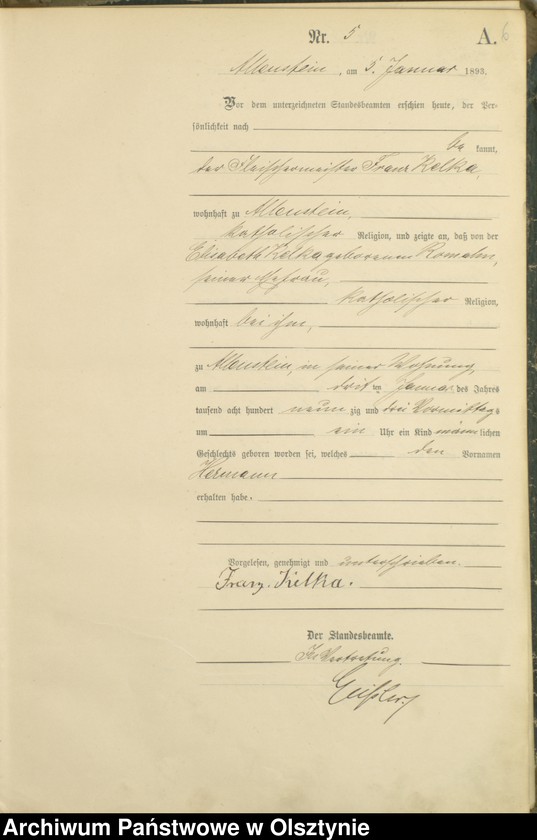 Nr. 5
A. 6
Allenstein, am 5. Januar 1893.
Vor dem unterzeichneten Standesbeamten erschien heute, der Per-
sönlichkeit nach
be kannt,
der Fleischermeister Franz Kelka,
wohnhaft zu Allenstein,
katholischer Religion, und zeigte an, daß von der
Elisabeth Kelka geborenen
seiner Ehefrau,
katholischer Religion,
wohnhaft bei ihm,
zu Allenstein, in seiner Wohnung,
am dritten Januar des Jahres
tausend acht hundert neunzig und drei Vormittags
um ein Uhr ein Kind männlichen
Geschlechts geboren worden sei, welches den Vornamen
Hermann
erhalten habe.
Vorgelesen, genehmigt und unterschrieben.
Franz Kelka.
Der Standesbeamte.
In Vertretung.
Archiwum Państwowe w Olsztynie